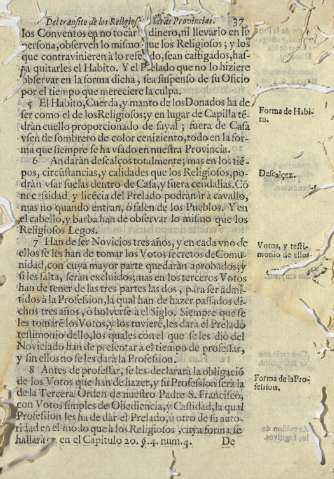 Del transito de los Religiosos à otras Provincias. 37
los Conventos en no tocar dinero, ni llevarlo en su
persona, observen lo mismo que los Religiosos; y los
que contravinieren à lo referido, sean castigados, hasta
quitarles el Habito. Y el Prelado que no lo hiziere
observar en la forma dicha, sea suspenso de su Oficio
por el tiempo que mereciere la culpa.
5 El Habito, Cuerda, y manto de los Donados ha de
ser como el de los Religiosos; y en lugar de Capilla tẽ-
dràn cuello proporcionado de sayal; fuera de Casa
vsen de sombrero de color ceniziento, todo en la for-
ma que siempre se ha vsado en nuestra Provincia.
Forma de Habi-
to.
6 Andaràn descalços totalmente; mas en los tiẽ-
pos, circustancias, y calidades que los Religiosos, po-
dràn vsar suelas dentro de Casa, y fuera sendalias. Cõ
necessidad, y licẽcia del Prelado podràn ir à cavallo,
mas no quando entran, ò salen de los Pueblos. Y en
el cabello, y barba han de observar lo mismo que los
Religiosos Legos.
Descalçez.
7 Han de ser Novicios tres años, y en cada vno de
ellos se les han de tomar los Votos secretos de Comu-
nidad, con cuya mayor parte quedaràn aprobados; y
si les falta, seràn excluidos; mas en los terceros Votos
han de tener de las tres partes las dos, para ser admi-
tidos à la Profession, la qual han de hazer passados di-
chos tres años, ò bolverse al Siglo. Siempre que se
les tomarẽ los Votos, y los tuvierẽ, les darà el Prelado
testimonio dello, los quales con el que se les diò del
Noviciado han de presentar à el tiempo de professar,
y sin ellos no se les darà la Profession.
Votos, y testi-
monio de ellos
8 Antes de professar, se les declararà la obligaciõ
de los Votos que han de hazer, y su Profession serà la
de la Tercera Orden de nuestro Padre S. Francisco,
con Votos simples de Obediencia, y Castidad, la qual
Profession les ha de dar el Prelado, ù otro de su auto-
ridad en el modo que à los Religiosos, cuya forma se
hallarà en el Capitulo 20. §. 4. num. 4. De
Forma de la Pro-
fession.